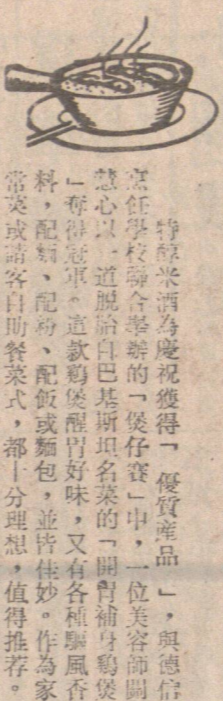 特醇米酒為慶祝獲得「優質産品」,與德信
烹飪學校聯合舉辦的「煲仔賽」中,一位美容師關
慧心以一道脫胎自巴基斯坦名菜的「開胃補身鷄煲
」奪得冠軍。這款鷄煲醒胃好味,又有各種驅風香
料,配麵、配粉、配飯或麵包,並皆佳妙。作為家
常菜或請客自助餐菜式,都十分理想,值得推荐。